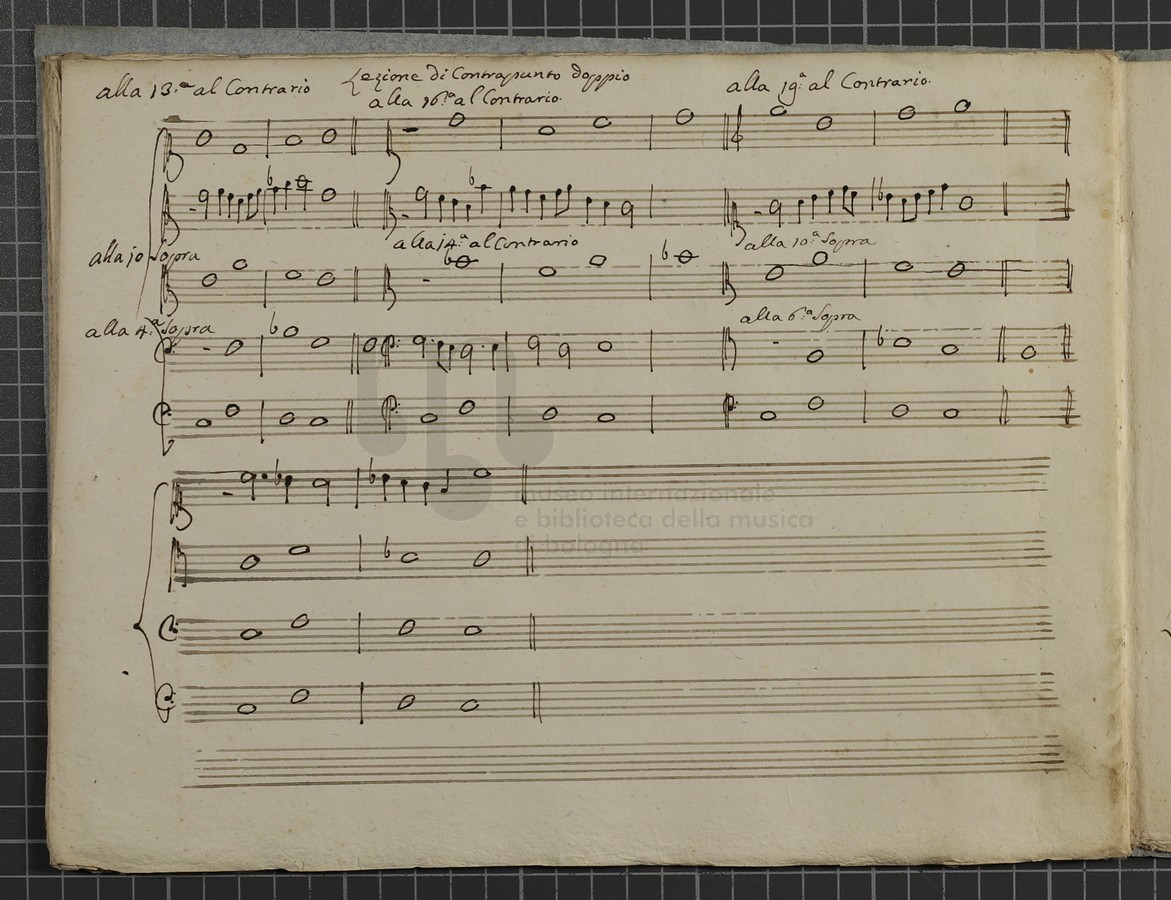 Lezione di Contrapunto doppio
alla 13.ª al Contrario
alla 16.ª al Contrario.
alla 19.ª al Contrario.
alla 10 Sopra
alla 14.ª al Contrario
alla 10.ª Sopra
alla 4.ª Sopra
alla 6.ª Sopra
museo internazionale
e biblioteca della musica
di bologna